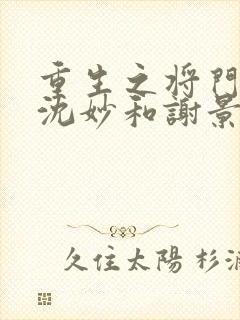 重生之将門
沈妙和謝景
久住太陽 杉浦